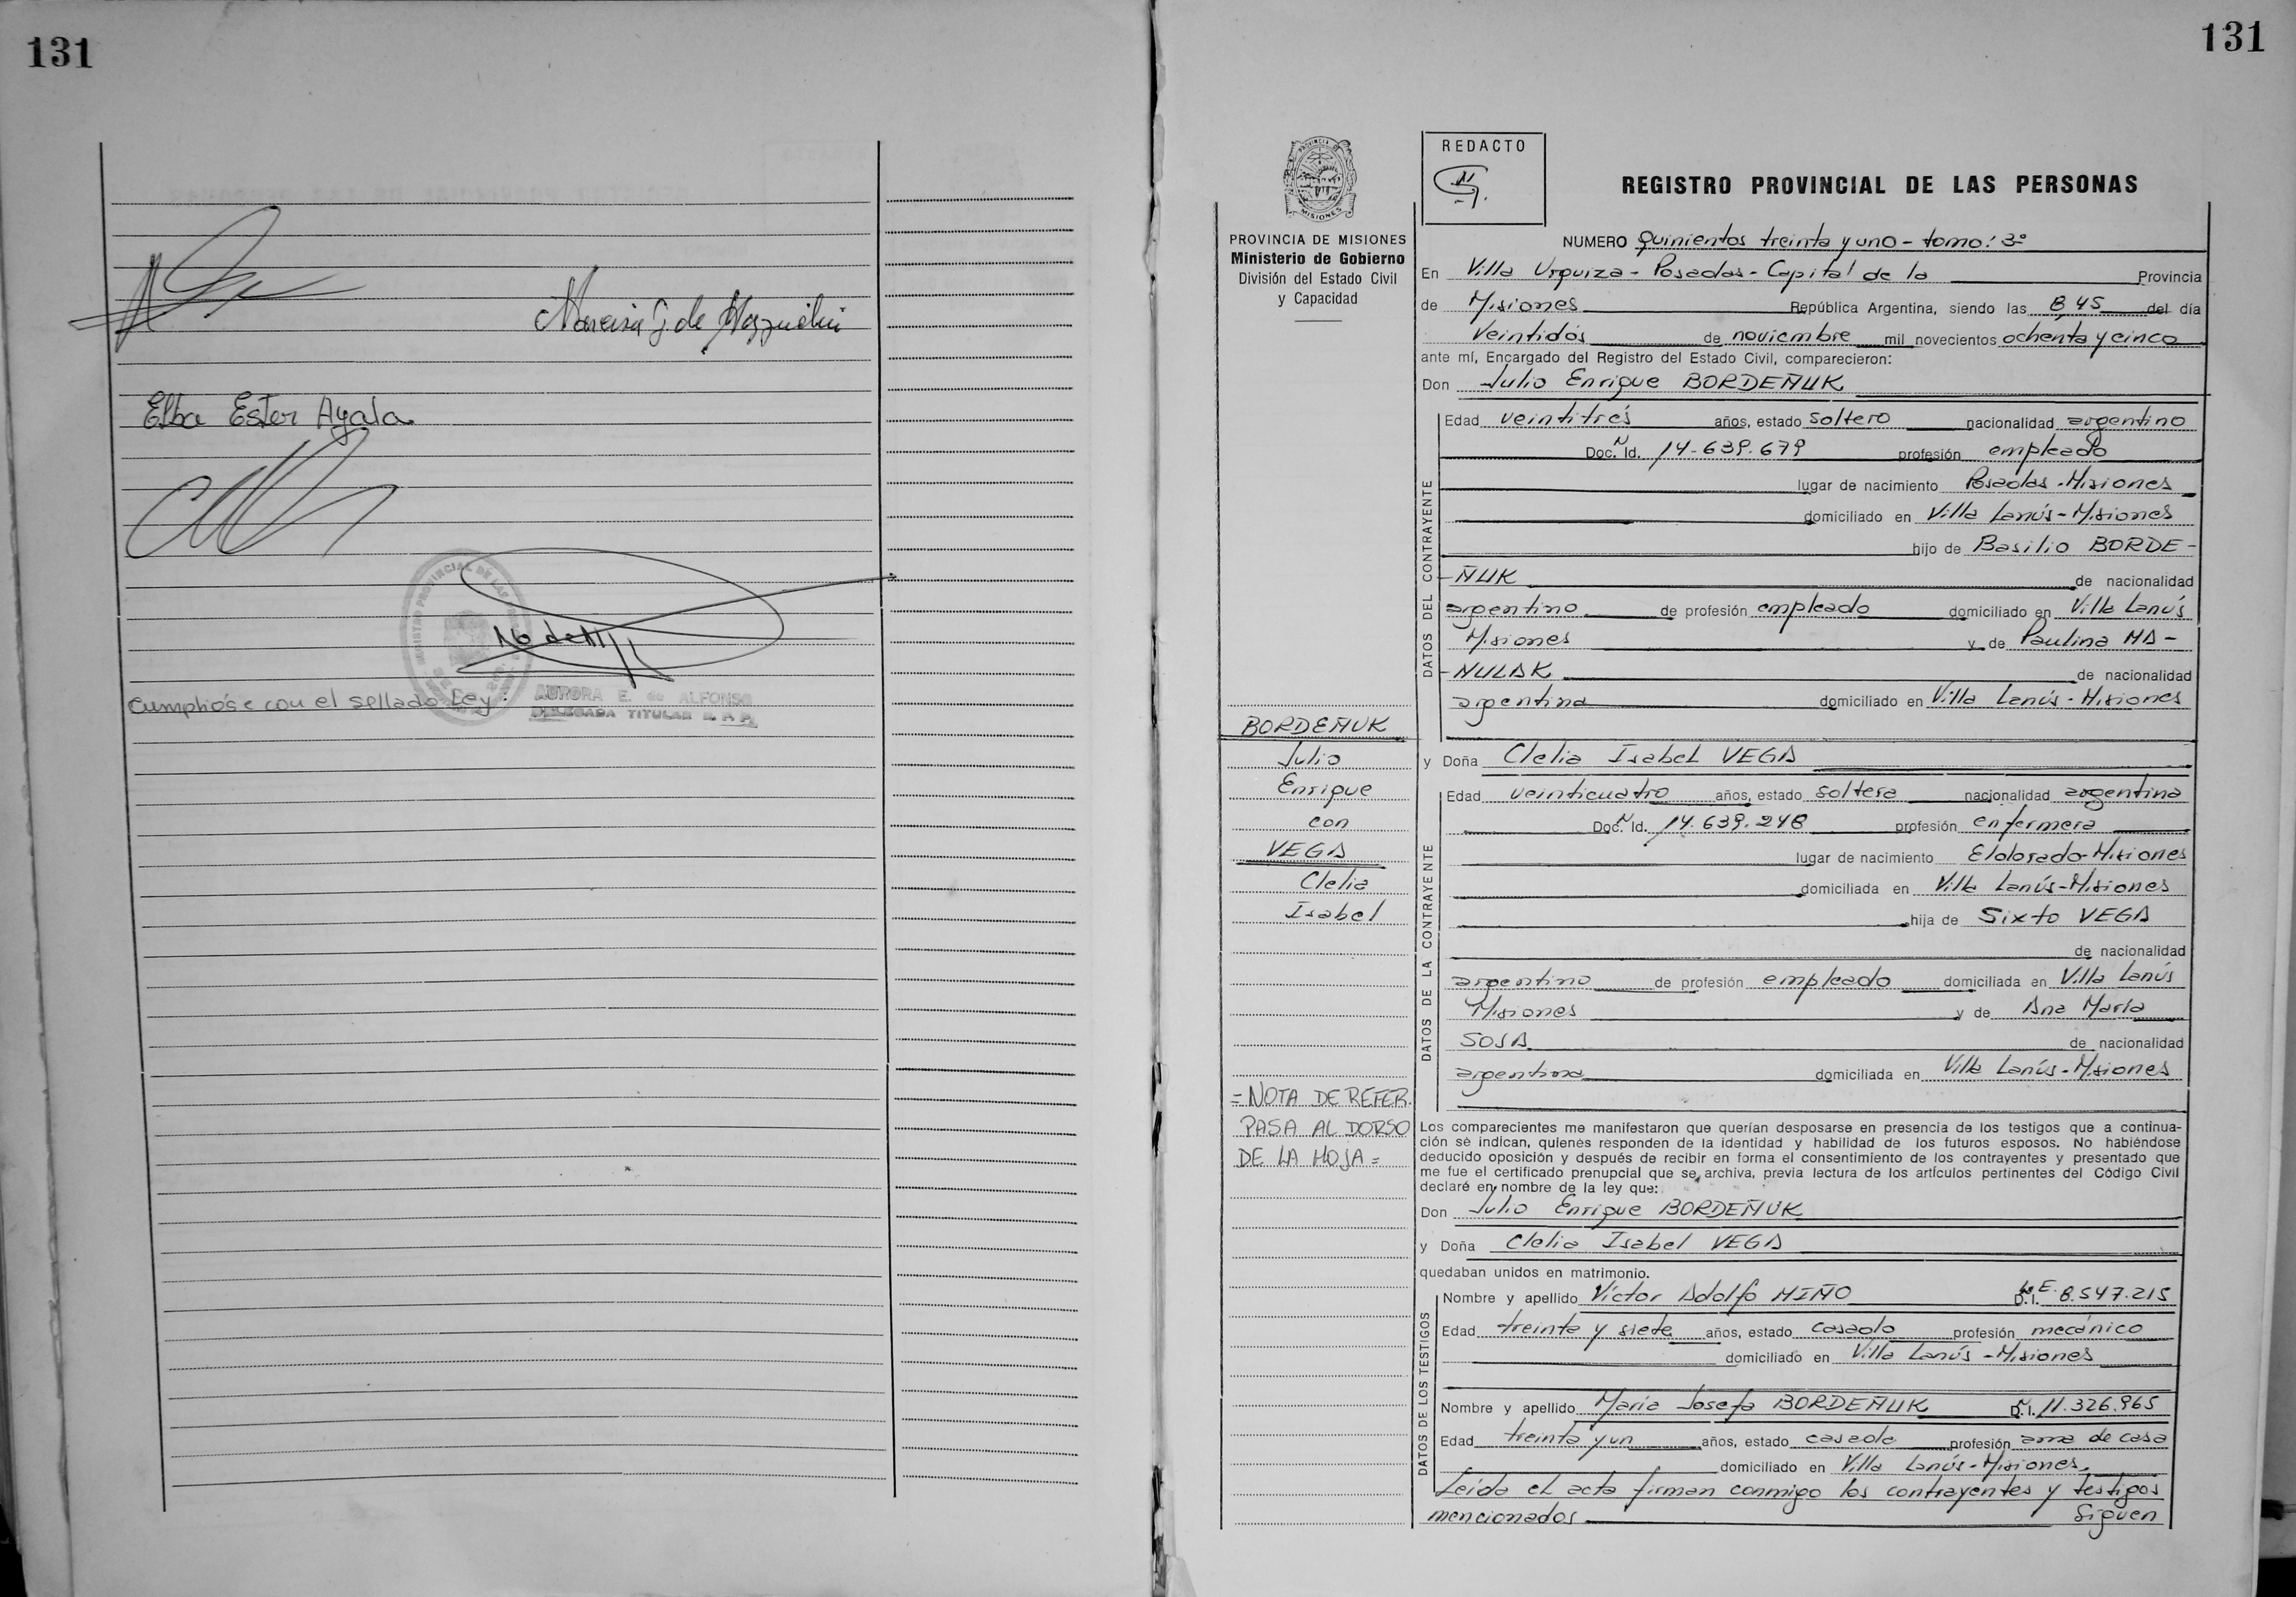 131
Elba Ester Ayala
Cumplióse con el sellado Ley:
AURORA E. de ALFONSO
DELEGADA TITULAR R. P. P.
131
PROVINCIA DE MISIONES
Ministerio de Gobierno
División del Estado Civil
y Capacidad
BORDEÑUK
Julio
Enrique
con
VEGA
Clelia
Isabel
=NOTA DE REFER.
PASA AL DORSO
DE LA HOJA=
REDACTO
REGISTRO PROVINCIAL DE LAS PERSONAS
NUMERO Quinientos treinta y uno - tomo: 3º
En Villa Urquiza - Posadas - Capital de la Provincia
de Misiones República Argentina, siendo las 8 45 del día
Veintidós de noviembre mil novecientos ochenta y cinco
ante mí, Encargado del Registro del Estado Civil, comparecieron:
Don Julio Enrique BORDEÑUK
DATOS DEL CONTRAYENTE
Edad veintitrés años, estado soltero nacionalidad argentino
Doc. N Id. 14-639.679 profesión empleado
lugar de nacimiento Posadas - Misiones
domiciliado en Villa Lanús - Misiones
hijo de Basilio BORDE-
-ÑUK de nacionalidad
argentino de profesión empleado domiciliado en Villa Lanús
Misiones y de Paulina HA-
-NULAK de nacionalidad
argentina domiciliado en Villa Lanús - Misiones
y Doña Clelia Isabel VEGA
DATOS DE LA CONTRAYENTE
Edad veinticuatro años, estado soltera nacionalidad argentina
Doc. N Id. 14.639.248 profesión enfermera
lugar de nacimiento Eldorado-Misiones
domiciliada en Villa Lanús-Misiones
hija de Sixto VEGA
de nacionalidad
argentino de profesión empleado domiciliada en Villa Lanús
Misiones y de Ana María
SOSA de nacionalidad
argentina domiciliada en Villa Lanús - Misiones
Los comparecientes me manifestaron que querían desposarse en presencia de los testigos que a continua-
ción se indican, quienes responden de la identidad y habilidad de los futuros esposos. No habiéndose
deducido oposición y después de recibir en forma el consentimiento de los contrayentes y presentado que
me fue el certificado prenupcial que se archiva, previa lectura de los artículos pertinentes del Código Civil
declaré en nombre de la ley que:
Don Julio Enrique BORDEÑUK
y Doña Clelia Isabel VEGA
quedaban unidos en matrimonio.
DATOS DE LOS TESTIGOS
Nombre y apellido Víctor Adolfo MIÑO L.E. D.I. 8.547.215
Edad treinta y siete años, estado casado profesión mecánico
domiciliado en Villa Lanús - Misiones
Nombre y apellido María Josefa BORDEÑUK D.N.I. 11.326.965
Edad treinta y un años, estado casada profesión ama de casa
domiciliado en Villa Lanús - Misiones.
Leída el acta firman conmigo los contrayentes y testigos
mencionados Siguen